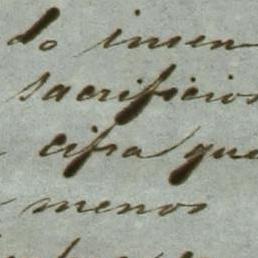 do inmen
sacrificios
cifra que
menos